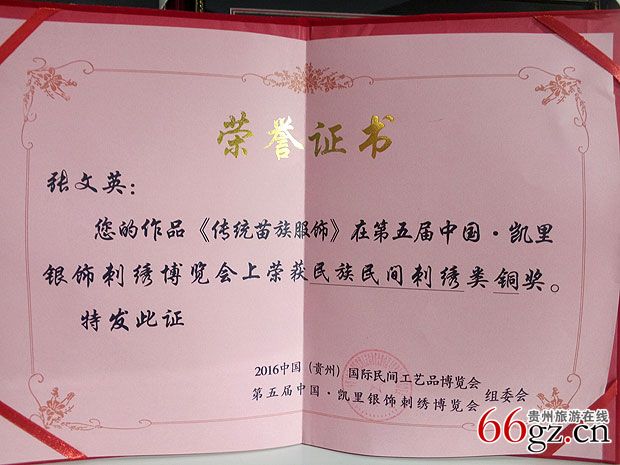 荣誉证书
张文英：
您的作品《传统苗族服饰》在第五届中国·凯里
银饰刺绣博览会上荣获民族民间刺绣类铜奖。
特发此证
2016中国（贵州）国际民间工艺品博览会
第五届中国·凯里银饰刺绣博览会
组委会
贵州旅游在线
66gz.cn